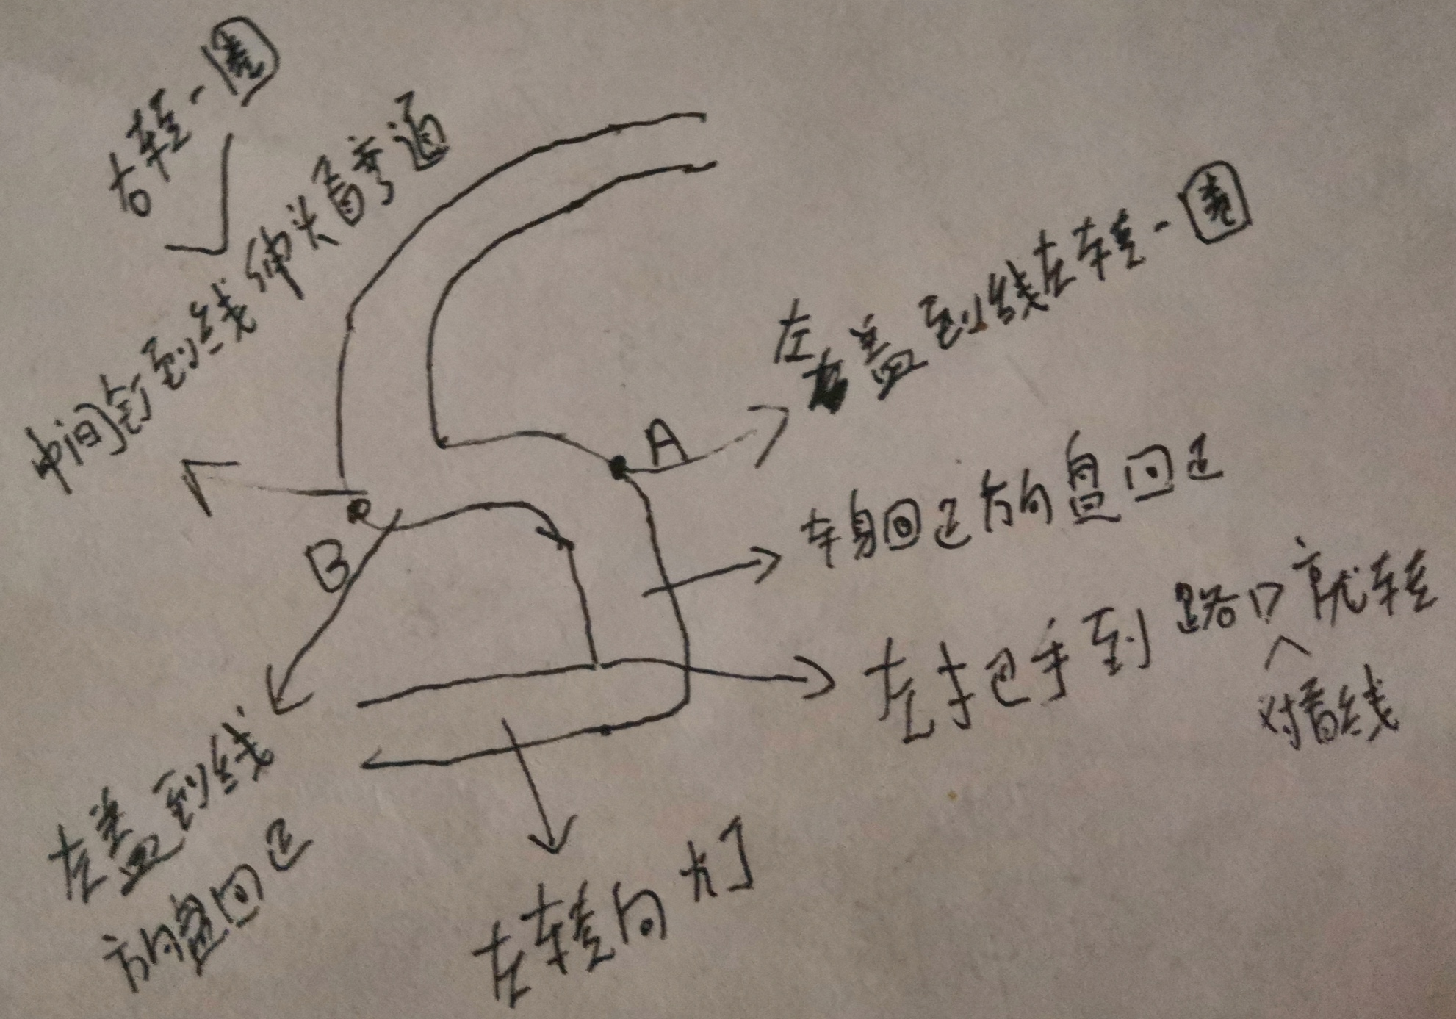 右转一圈
中间钉到线伸头看弯道
左盖到线左转一圈
A
车身回正方向盘回正
B
左手把手到路口就转
对看线
左盖到线
方向盘回正
左转向灯